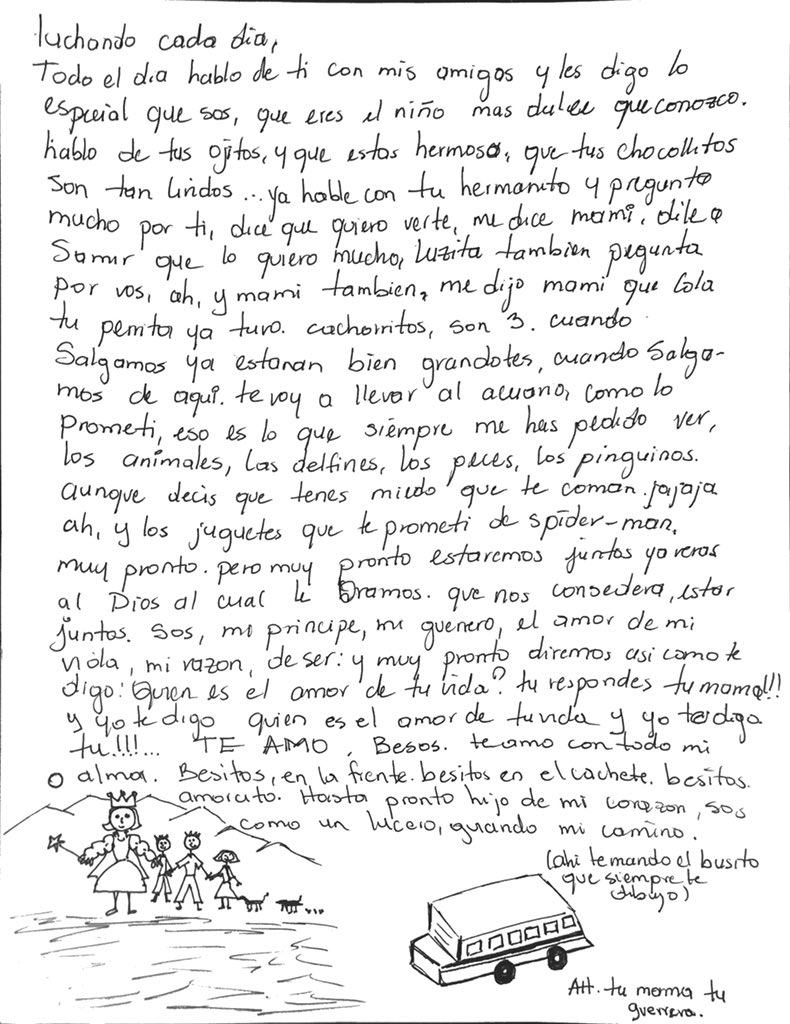 luchando cada dia,
Todo el dia hablo de ti con mis amigos y les digo lo
especial que sos, que eres el niño mas dulce que conozco.
hablo de tus ojitos, y que estas hermoso, que tus chocollitos
son tan lindos... ya hable con tu hermanito y pregunto
mucho por ti, dice que quiero verte, me dice mami. dile a
Samir que lo quiero mucho, luzita tambien pegunta
por vos, ah, y mami tambien, me dijo mami que Lola
tu perrita ya tuvo. cachorritos, son 3. cuando
Salgamos ya estaran bien grandotes, cuando Salga-
mos de aquí. te voy a llevar al acuario, como lo
prometi, eso es lo que siempre me has pedido ver,
los animales, las delfines, los peces, los pinguinos.
aunque decis que tenes miedo que te coman. jajaja
ah, y los juguetes que te prometi de spider-man.
muy pronto. pero muy pronto estaremos juntos ya veras
al Dios al cual le Oramos. que nos consedera, estar
juntos. Sos, mi principe, mi guerrero, el amor de mi
vida, mi razon, de ser: y muy pronto diremos asi como te
digo: Quien es el amor de tu vida? tu respondes tu mama!!!
y yo te digo quien es el amor de tu vida y yo te diga
tu!!!!... TE AMO, Besos. te amo con todo mi
alma. Besitos, en la frente. besitos en el cachete. besitos.
amorcito. Hasta pronto hijo de mi corazon, sos
como un lucero, guiando mi camino.
(ahi te mando el busito
que siempre te
dibujo)
Att. tu mama tu
guerrera.